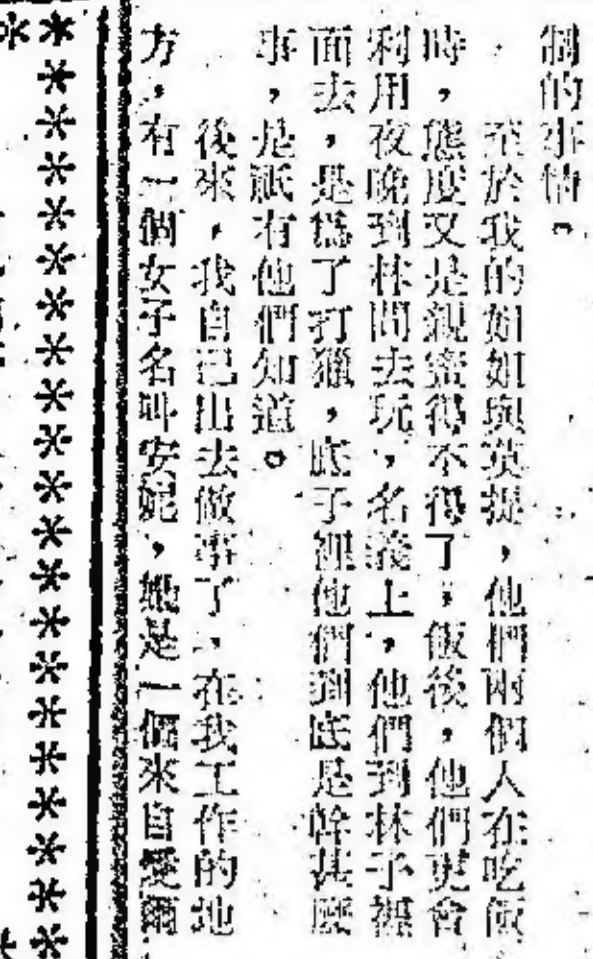 制的事情。
至於我的姐姐與莫提，他們兩個人在吃飯
時，態度又是親蜜得不得了，飯後，他們更會
利用夜晚到林間去玩，名義上，他們到林子裡
面去，是爲了打獵，底子裡他們到底是幹甚麼
事，是祇有他們知道。
後來，我自己出去做事了，在我工作的地
方，有一個女子名叫安妮，她是一個來自愛爾